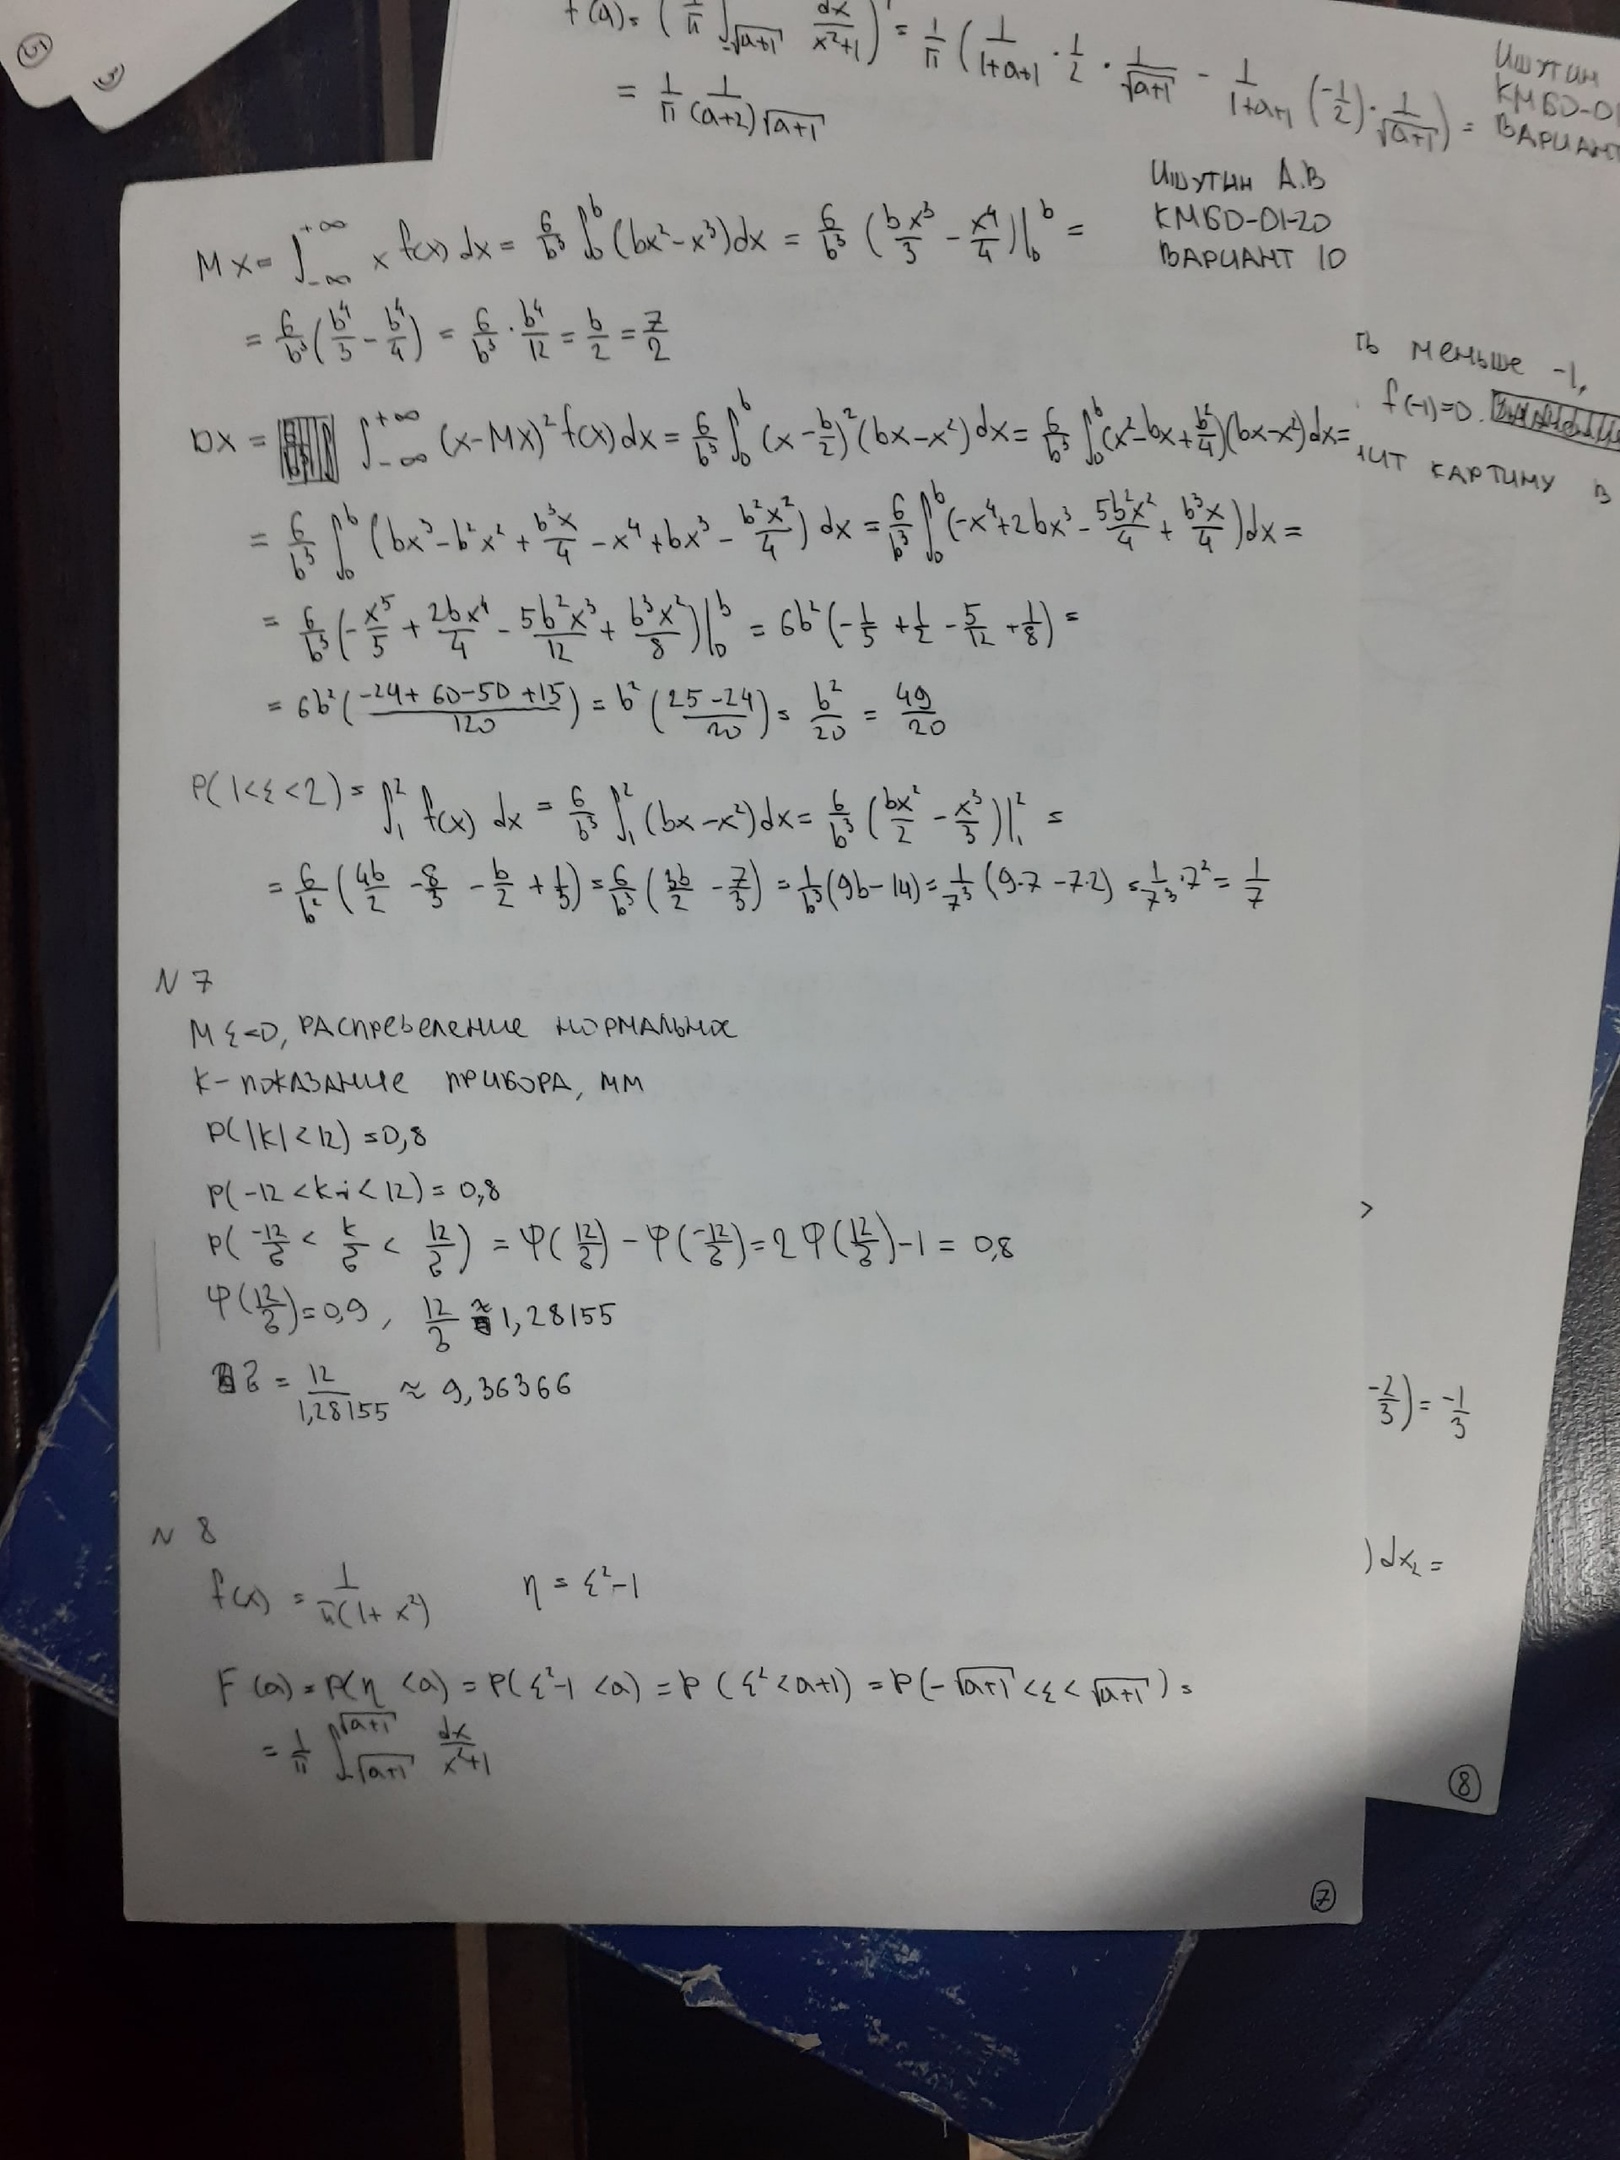 5
3
f(a) = (1/π ∫_{-√(a+1)} dx/(x²+1))' = 1/π (1/(1+a+1) · 1/2 · 1/√(a+1) - 1/(1+a+1) (-1/2) · 1/√(a+1)) =
= 1/π 1/((a+2)√(a+1))
Ишутин
КМБО-01
ВАРИАНТ
Ишутин А.В
КМБО-01-20
ВАРИАНТ 10
Mx = ∫_{-∞}^{+∞} x f(x) dx = 6/b³ ∫_0^b (bx²-x³)dx = 6/b³ (bx³/3 - x⁴/4)|_0^b =
= 6/b³ (b⁴/3 - b⁴/4) = 6/b³ · b⁴/12 = b/2 = 7/2
Dx = ∫_{-∞}^{+∞} (x-Mx)² f(x) dx = 6/b³ ∫_0^b (x-b/2)² (bx-x²)dx = 6/b³ ∫_0^b (x²-bx+b²/4)(bx-x²)dx =
= 6/b³ ∫_0^b (bx³-b²x²+b³x/4-x⁴+bx³-b²x²/4) dx = 6/b³ ∫_0^b (-x⁴+2bx³-5b²x²/4+b³x/4)dx =
= 6/b³ (-x⁵/5 + 2bx⁴/4 - 5b²x³/12 + b³x²/8)|_0^b = 6b² (-1/5 + 1/2 - 5/12 + 1/8) =
= 6b² ((-24+60-50+15)/120) = b² ((25-24)/20) = b²/20 = 49/20
P(1<ξ<2) = ∫_1^2 f(x) dx = 6/b³ ∫_1^2 (bx-x²)dx = 6/b³ (bx²/2 - x³/3)|_1^2 =
= 6/b² (4b/2 - 8/3 - b/2 + 1/3) = 6/b³ (3b/2 - 7/3) = 1/b³ (9b-14) = 1/7³ (9·7-7·2) = 1/7³ · 7² = 1/7
N 7
Mξ=0, РАСПРЕДЕЛЕНИЕ НОРМАЛЬНОЕ
К- ПОКАЗАНИЕ ПРИБОРА, ММ
P(|k|<12) = 0,8
P(-12 < k < 12) = 0,8
P(-12/σ < k/σ < 12/σ) = Φ(12/σ) - Φ(-12/σ) = 2Φ(12/σ)-1 = 0,8
Φ(12/σ) = 0,9, 12/σ ≈ 1,28155
σ = 12/1,28155 ≈ 9,36366
N 8
f(x) = 1/(π(1+x²)) η = ξ²-1
F(a) = P(η<a) = P(ξ²-1<a) = P(ξ²<a+1) = P(-√(a+1)<ξ<√(a+1)) =
= 1/π ∫_{-√(a+1)}^{√(a+1)} dx/(x²+1)
7
ть меньше -1,
f(-1)=0.
чит картину в
>
-2/3) = -1/3
)dx₂ =
8